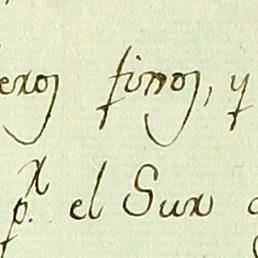 eros finos, y
p.r el Sur